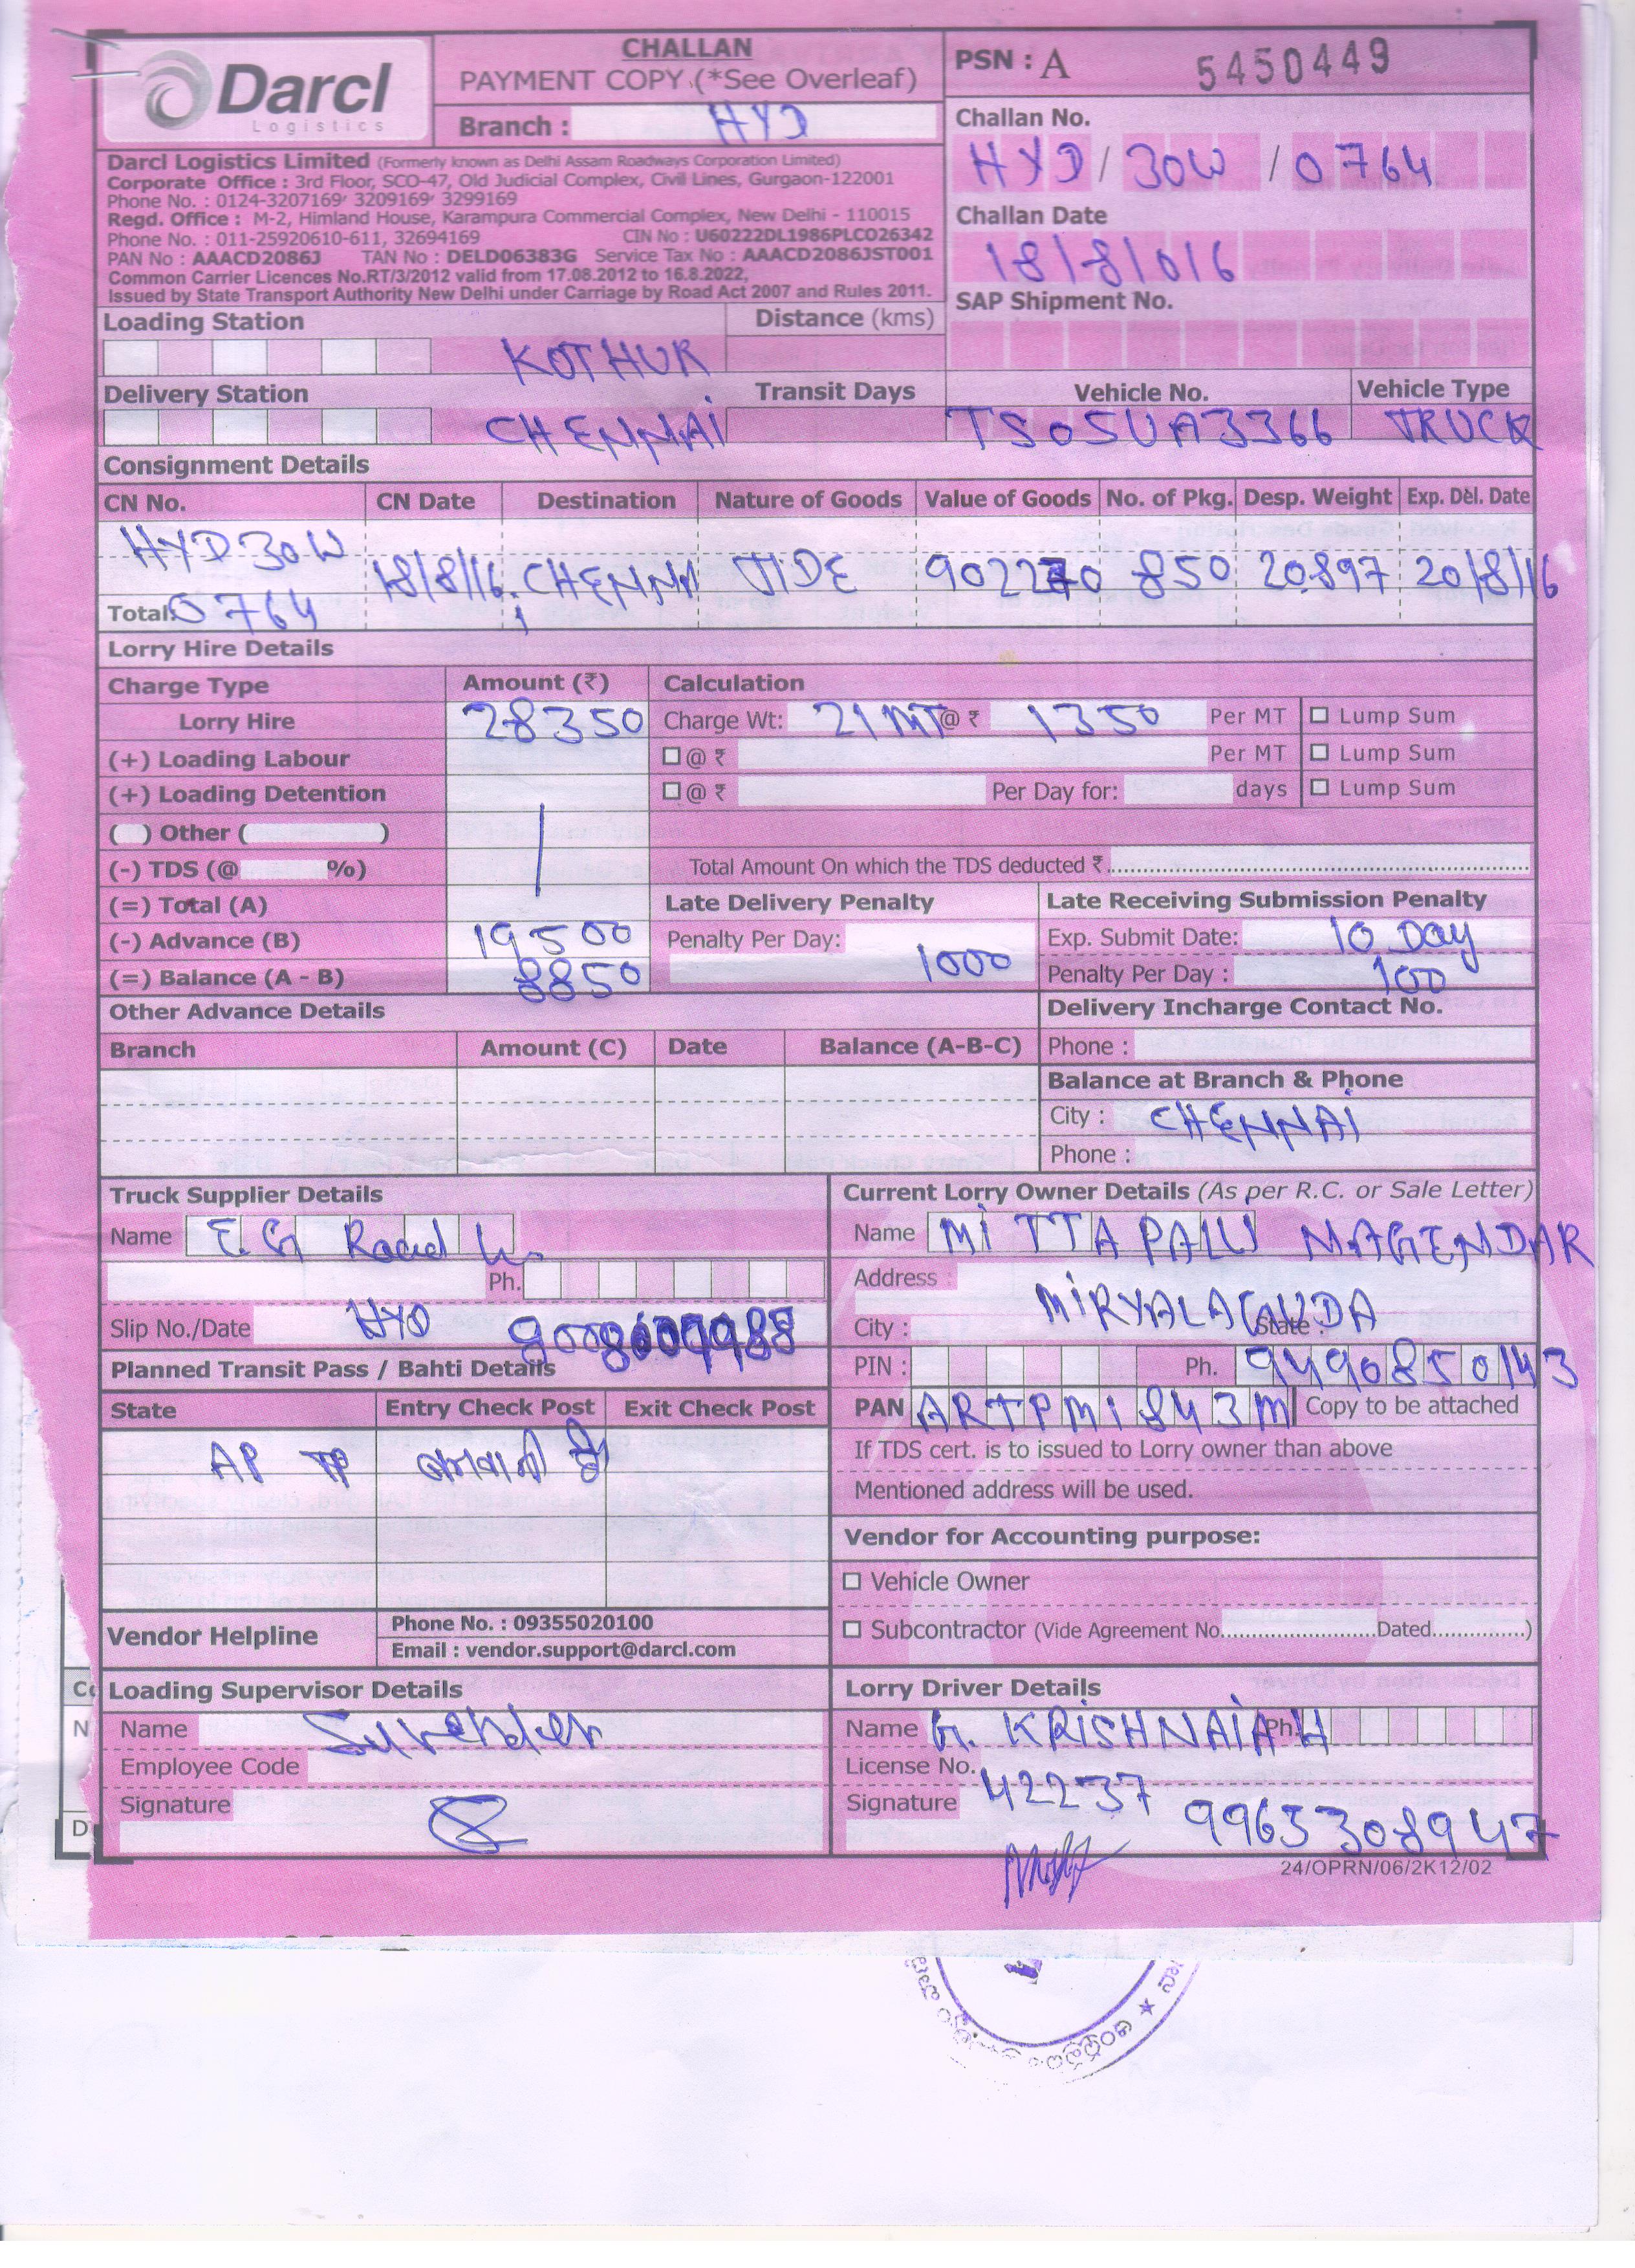 Darcl
Logistics
CHALLAN
PAYMENT COPY (*See Overleaf)
Branch : HYD
PSN : A 5450449
Challan No.
HYD / 30W / 0764
Challan Date
18/8/016
SAP Shipment No.
Darcl Logistics Limited (Formerly known as Delhi Assam Roadways Corporation Limited)
Corporate Office : 3rd Floor, SCO-47, Old Judicial Complex, Civil Lines, Gurgaon-122001
Phone No. : 0124-3207169, 3209169, 3299169
Regd. Office : M-2, Himland House, Karampura Commercial Complex, New Delhi - 110015
Phone No. : 011-25920610-611, 32694169 CIN No : U60222DL1986PLCO26342
PAN No : AAACD2086J TAN No : DELD06383G Service Tax No : AAACD2086JST001
Common Carrier Licences No.RT/3/2012 valid from 17.08.2012 to 16.8.2022,
Issued by State Transport Authority New Delhi under Carriage by Road Act 2007 and Rules 2011.
Loading Station KOTHUR Distance (kms)
Delivery Station CHENNAi Transit Days
Vehicle No. Vehicle Type
TS05UA3366 TRUCK
Consignment Details
CN No. CN Date Destination Nature of Goods Value of Goods No. of Pkg. Desp. Weight Exp. Del. Date
HYD 30W 18/8/16 CHENNAi TIDE 902270 850 20.897 20/8/16
Total: 0764
Lorry Hire Details
Charge Type Amount (₹) Calculation
Lorry Hire 28350 Charge Wt: 21 MT @ ₹ 1350 Per MT Lump Sum
(+) Loading Labour @ ₹ Per MT Lump Sum
(+) Loading Detention @ ₹ Per Day for: days Lump Sum
( ) Other ( )
(-) TDS (@ %) Total Amount On which the TDS deducted ₹
(=) Total (A) Late Delivery Penalty Late Receiving Submission Penalty
(-) Advance (B) 19500 Penalty Per Day: 1000 Exp. Submit Date: 10 Day
(=) Balance (A - B) 8850 Penalty Per Day : 100
Other Advance Details Delivery Incharge Contact No.
Branch Amount (C) Date Balance (A-B-C) Phone :
Balance at Branch & Phone
City : CHENNAi
Phone :
Truck Supplier Details
Name E.G Road
Ph.
Slip No./Date HYD
Current Lorry Owner Details (As per R.C. or Sale Letter)
Name MiTTAPALLI NAGENDAR
Address
MiRYALAGUDA
City : State :
PIN : Ph. 9490850143
PAN ARTPM1843M Copy to be attached
If TDS cert. is to issued to Lorry owner than above
Mentioned address will be used.
Planned Transit Pass / Bahti Details
State Entry Check Post Exit Check Post
AP TP
Vendor for Accounting purpose:
Vehicle Owner
Subcontractor (Vide Agreement No. Dated )
Vendor Helpline Phone No. : 09355020100
Email : vendor.support@darcl.com
Loading Supervisor Details
Name Surender
Employee Code
Signature
Lorry Driver Details
Name G. KRiSHNAiAH Ph.
License No. 42237
Signature 9963308947
24/OPRN/06/2K12/02